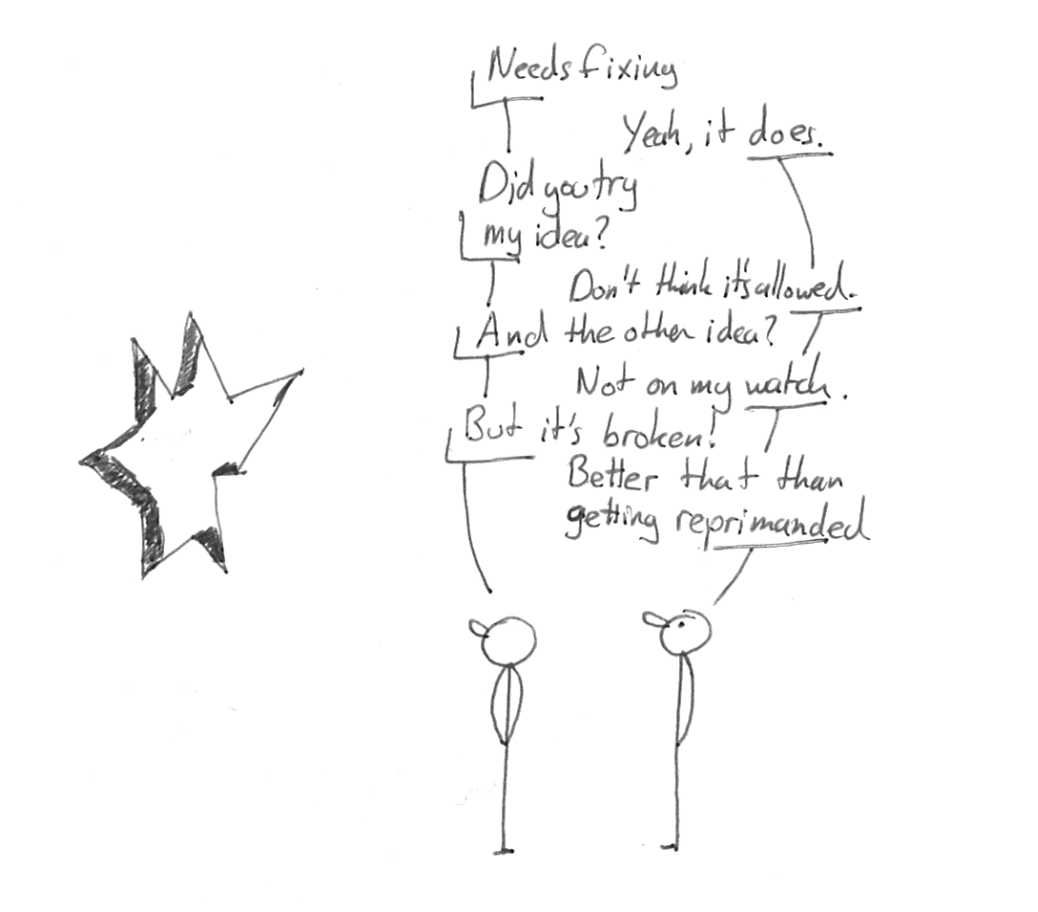 Needs fixing
Yeah, it does.
Did you try
my idea?
Don't think it's allowed.
And the other idea?
Not on my watch.
But it's broken!
Better that than
getting reprimanded